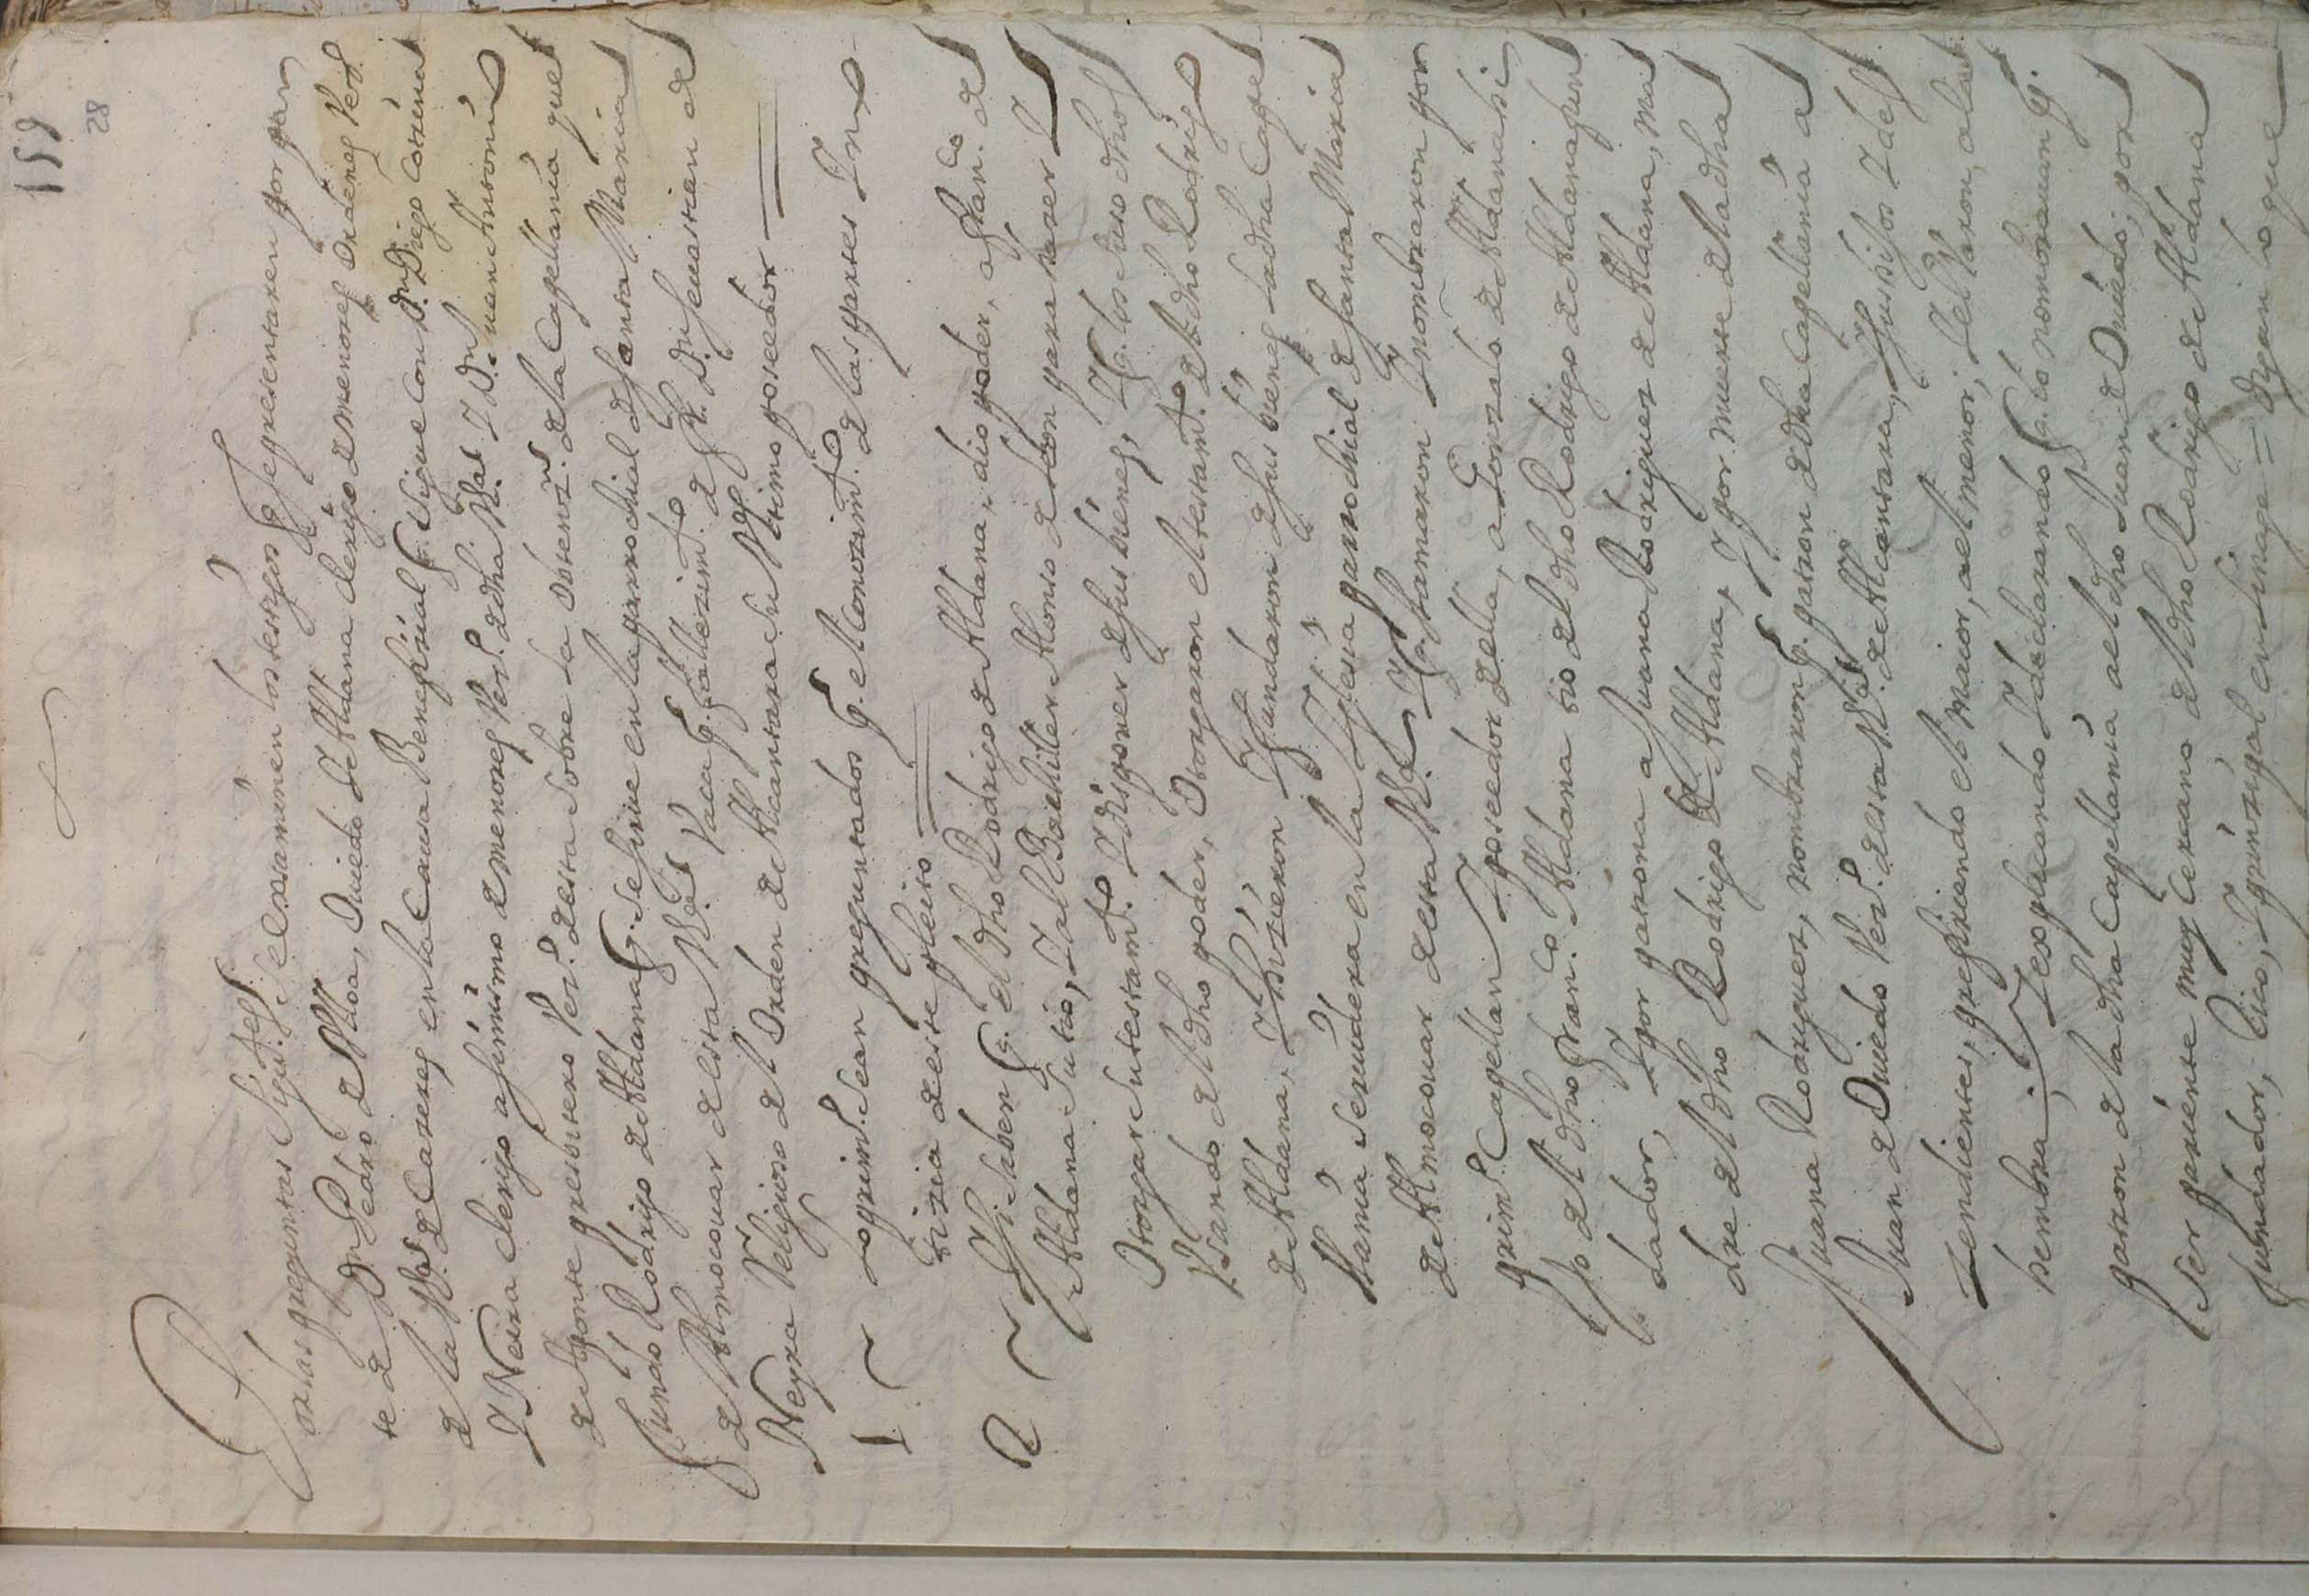 159
28
Por las preguntas Siguitess. Se examinen los testigos q Se presentaren por par
te de Dn Pedro de Ulloa, Ouiedo de Aldana clerigo de menores ordenes Vezo.
de la Va. de Cazeres en la Causa Benefizial q. Sigue con Dn. Diego Cotrina
Y Neira Clerigo asimismo de menores Vezo. de dha Va. Y Dn. Juan Antonio
de Aponte presbitero Vezo. de esta Sobre la obtenzn. de la Capellania que
fundo Rodrigo de Aldana q. Se Sirue en la parrochial de Santa Maria
de Almocouar de esta Va. Vaca q. fallezimto. de fr. Dn Seuastian de
Neyra Religioso del orden de Alcantara Su Vltimo poseedor
1 Lo primo. Sean preguntados q. el Conozimto. de las partes Y no
tizia de este pleito
2 Si Sauen q. el dho Rodrigo de Aldana, dio poder, a franco. de
Aldana Su tio, Y al Bachiller Alonso de leon para hazer Y
Otorgar Su testamto. Y disponer de Sus bienes, Y q. los Suso dhos
Vsando del dho poder, otorgaron el testamto. del dho Rodrigo
de Aldana, Y hizieron Y fundaron de Sus bienes la dha Cape
llania Seruidera en la Yglesia parrochial de Santa Maria
de Almocouar de esta Va. Y q. llamaron Y nombraron por
primo. Capellan Y poseedor della, a Gonzalo de Aldana hi
jo del dho franco. Aldana tio del dho Rodrigo de Aldana fun
dador, Y por patrona a Juana Rodriguez de Aldana, ma
dre del dho Rodrigo de Aldana, Y por muerte de la dha
Juana Rodriguez, nombraron q. patron de dha Capellania a
Juan de Ouiedo Vezo. de esta Va. de Alcantara, Y Sus hijos Y des
zendientes, prefiriendo el maior, al menor, Y el Varon, a la
hembra; Y explicando Y declarando q. lo nombrauan q.
patron de la dha Capellania al dho Juan de Ouiedo, por
Ser pariente muy Cercano del dho Rodrigo de Aldana
fundador, Rico, Y prinzipal en linage = digan lo que